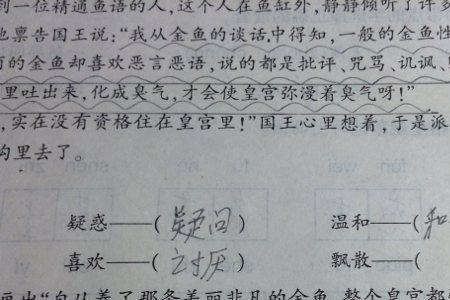 到一位精通鱼语的人,这个人在鱼缸外,静静倾听了许多
也禀告国王说:“我从金鱼的谈话中得知,一般的金鱼性
的金鱼却喜欢恶言恶语,说的都是批评、咒骂、讥讽、
里吐出来,化成臭气,才会使皇宫弥漫着臭气呀!”
,实在没有资格住在皇宫里!”国王心里想着,于是派
沟里去了。
疑惑——(疑问) 温和——(和
喜欢——(讨厌) 飘散——(
“自从养了那条美丽非凡的金鱼,整个皇宫都